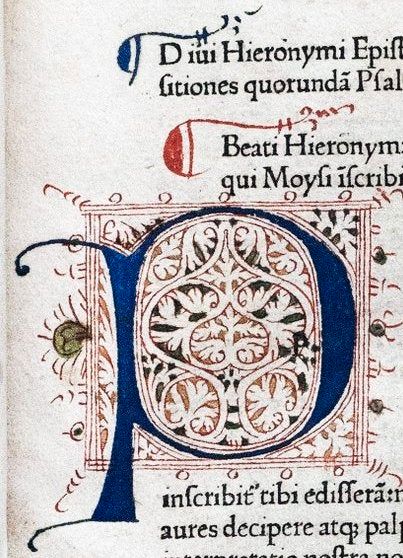 Diui Hieronymi Epist
sitiones quorundā Psal
Beati Hieronym
qui Moysi ī scribi
P
inscribit' tibi edisserā:
aures decipere atq; palp